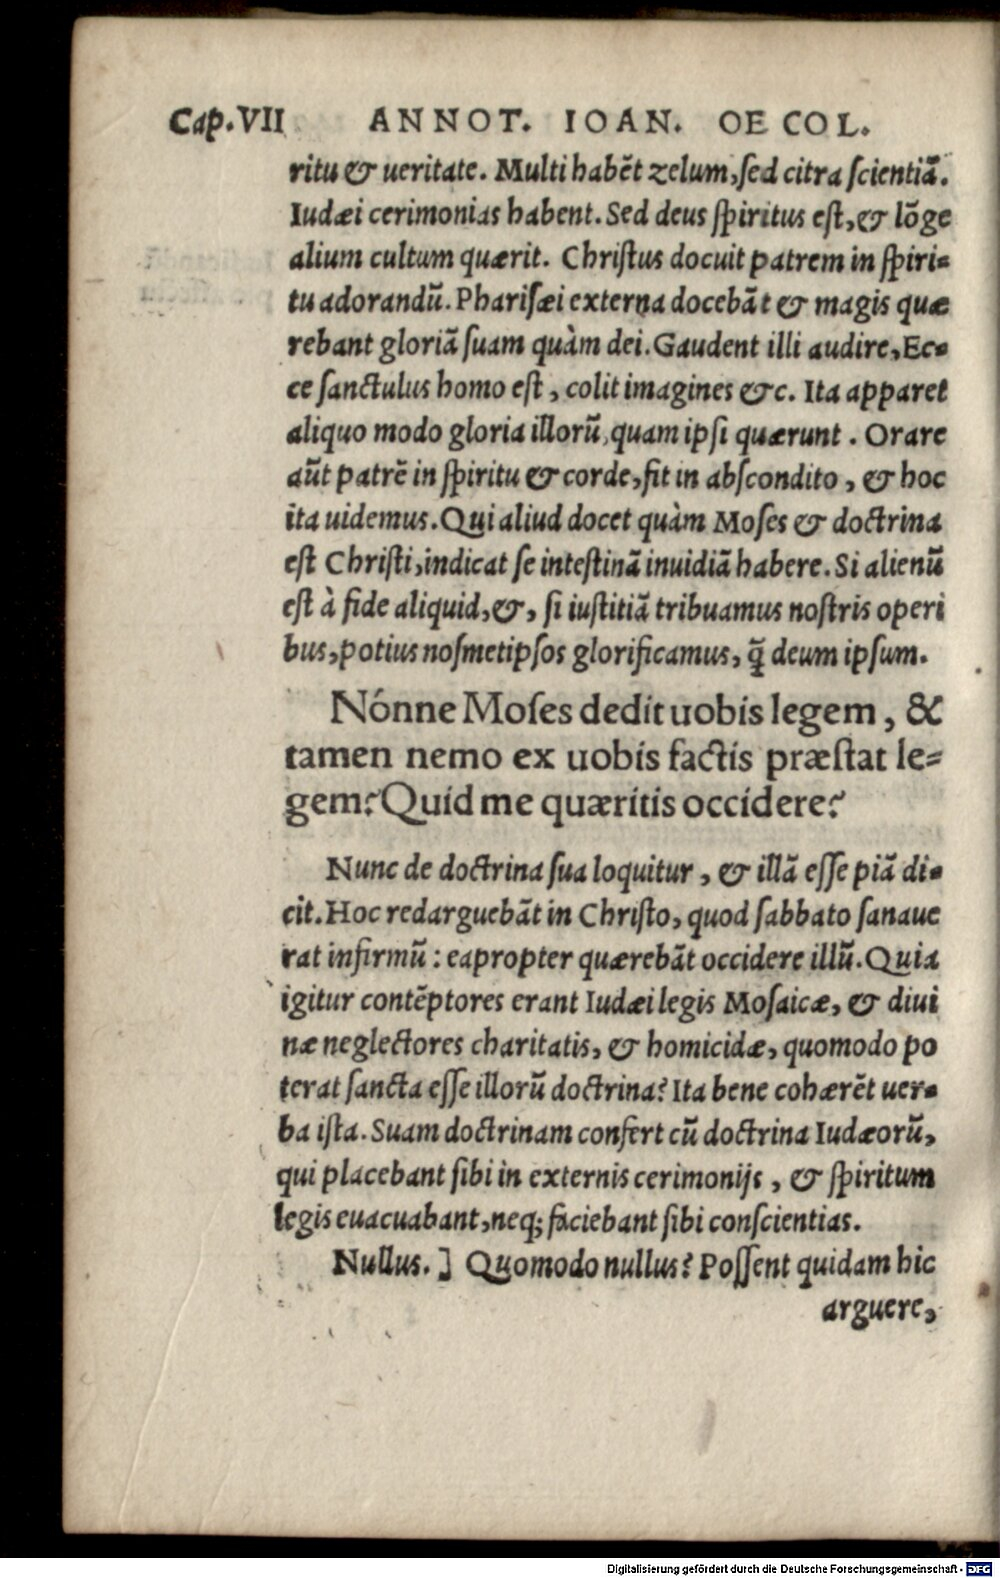 Cap.VII ANNOT. IOAN. OE COL.
ritu & ueritate. Multi habẽt zelum, ſed citra ſcientiã.
Iudæi cerimonias habent. Sed deus ſpiritus eſt, & lõge
alium cultum quærit. Chriſtus docuit patrem in ſpiri-
tu adorandũ. Phariſæi externa docebãt & magis quæ
rebant gloriã ſuam quàm dei. Gaudent illi audire, Ec-
ce ſanctulus homo eſt, colit imagines &c. Ita apparet
aliquo modo gloria illorũ, quam ipſi quærunt. Orare
aũt patrẽ in ſpiritu & corde, fit in abſcondito, & hoc
ita uidemus. Qui aliud docet quàm Moſes & doctrina
eſt Chriſti, indicat ſe inteſtinã inuidiã habere. Si alienũ
eſt à fide aliquid, &, ſi iuſtitiã tribuamus noſtris operi
bus, potius noſmetipſos glorificamus, q̃ deum ipſum.
Nónne Moſes dedit uobis legem, &
tamen nemo ex uobis factis præſtat le-
gem? Quid me quæritis occidere?
Nunc de doctrina ſua loquitur, & illã eſſe piã di-
cit. Hoc redarguebãt in Chriſto, quod ſabbato ſanaue
rat infirmũ: eapropter quærebãt occidere illũ. Quia
igitur contẽptores erant Iudæi legis Moſaicæ, & diui
næ neglectores charitatis, & homicidæ, quomodo po
terat ſancta eſſe illorũ doctrina? Ita bene cohærẽt uer-
ba iſta. Suam doctrinam confert cũ doctrina Iudæorũ,
qui placebant ſibi in externis cerimonijs, & ſpiritum
legis euacuabant, neq; faciebant ſibi conſcientias.
Nullus.] Quomodo nullus? Poſſent quidam hic
arguere,
Digitalisierung gefördert durch die Deutsche Forschungsgemeinschaft - DFG